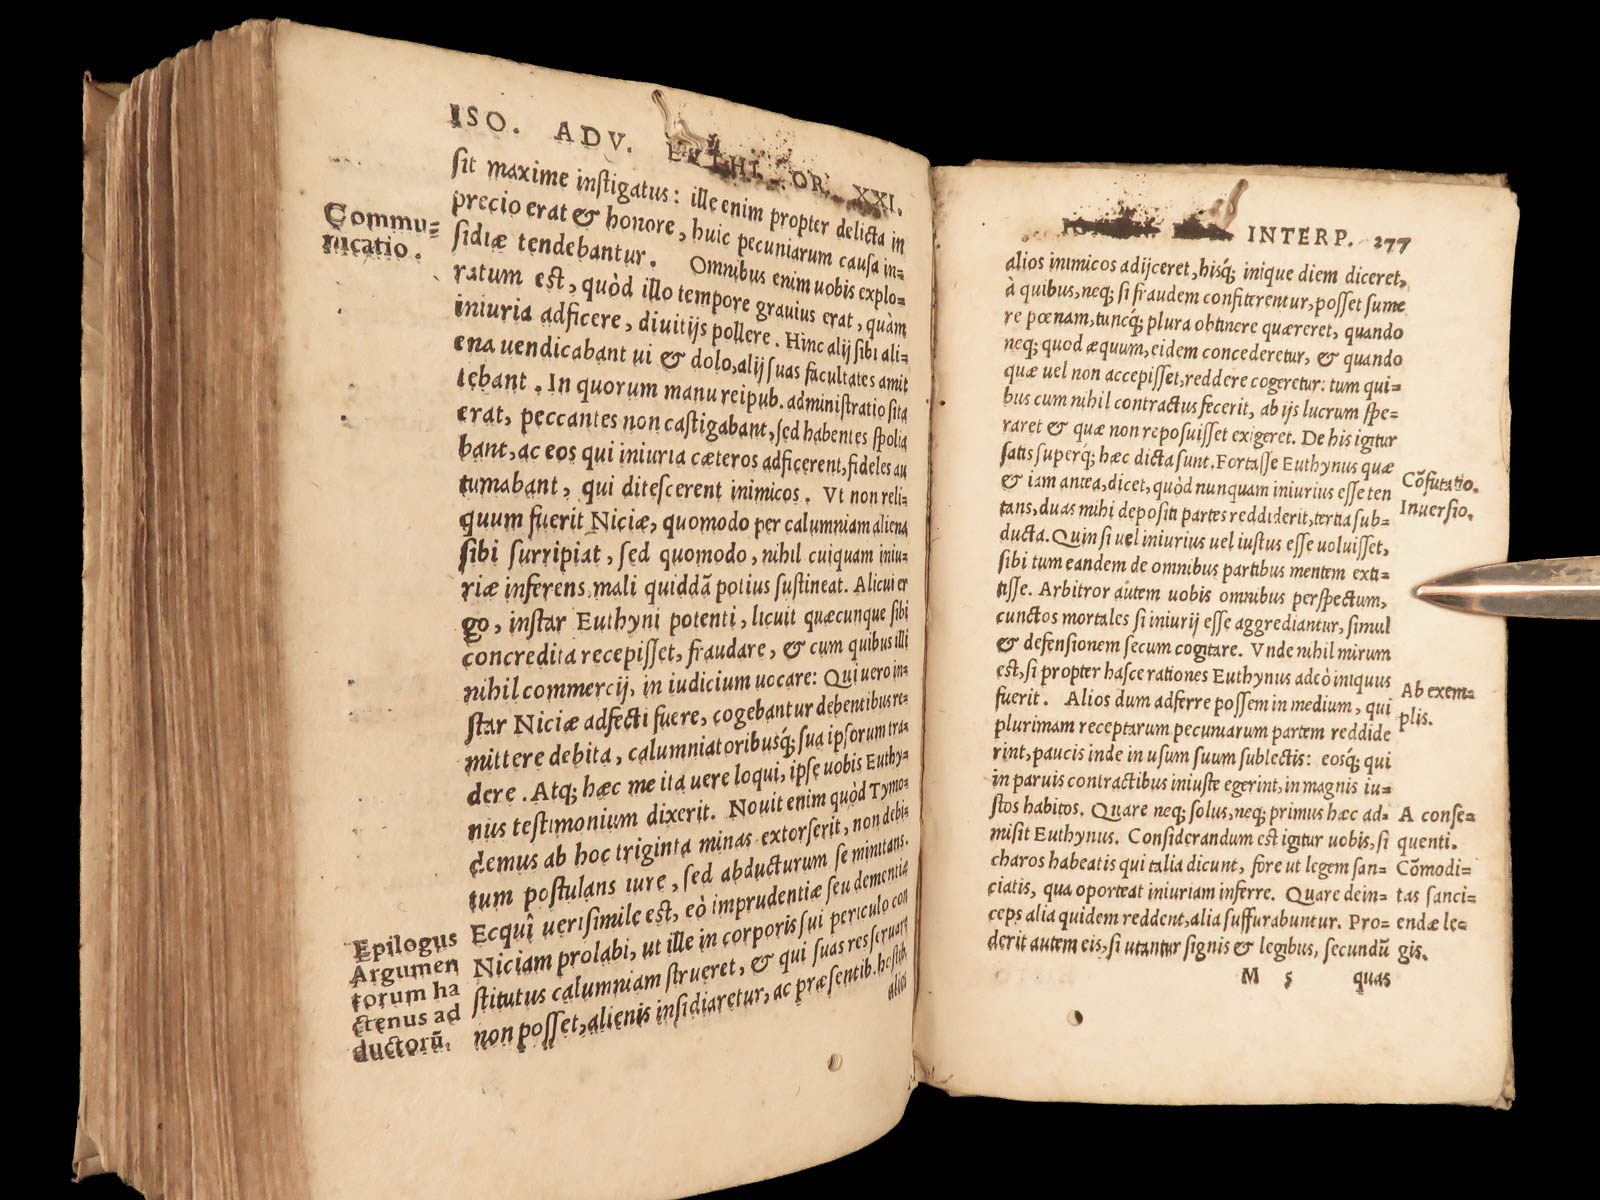 ISO. ADV. EVTHI. OR. XXI.
sit maxime instigatus: ille enim propter delicta in
precio erat & honore, huic pecuniarum causa in=
sidiæ tendebantur. Omnibus enim uobis explo=
ratum est, quòd illo tempore grauius erat, quàm
iniuria adficere, diuitijs pollere. Hinc alij sibi ali=
ena uendicabant ui & dolo, alij suas facultates amit
tebant. In quorum manu reipub. administratio sita
erat, peccantes non castigabant, sed habentes spolia
bant, ac eos qui iniuria cæteros adficerent, fideles au
tumabant, qui ditescerent inimicos. Vt non reli=
quum fuerit Niciæ, quomodo per calumniam aliena
sibi surripiat, sed quomodo, nihil cuiquam iniu=
riæ inferens, mali quiddã potius sustineat. Alicui er
go, instar Euthyni potenti, licuit quæcunque sibi
concredita recepisset, fraudare, & cum quibus illi
nihil commercij, in iudicium uocare: Qui uero in=
star Niciæ adfecti fuere, cogebantur debentibus re=
mittere debita, calumniatoribusq́; sua ipsorum tra=
dere. Atq; hæc me ita uere loqui, ipse uobis Euthy=
nus testimonium dixerit. Nouit enim quòd Tymo=
demus ab hoc triginta minas extorserit, non debi=
tum postulans iure, sed abducturum se minitans.
Ecquî uerisimile est, eò imprudentiæ seu dementiæ
Niciam prolabi, ut ille in corporis sui periculo con
stitutus calumniam strueret, & qui suas res seruare
non posset, alienis insidiaretur, ac præsentib. hostib.
alios
Commu=
nicatio.
Epilogus
Argumen
torum ha
ctenus ad
ductorũ.
INTERP. 277
alios inimicos adijceret, hisq́; inique diem diceret,
à quibus, neq; si fraudem confiterentur, posset sume
re pœnam, tuncq́; plura obtinere quæreret, quando
neq; quod æquum, eidem concederetur, & quando
quæ uel non accepisset, reddere cogeretur: tum qui=
bus cum nihil contractus fecerit, ab ijs lucrum spe=
raret & quæ non reposuisset exigeret. De his igitur
satis superq́; hæc dicta sunt. Fortasse Euthynus quæ
& iam antea, dicet, quòd nunquam iniurius esse ten
tans, duas mihi depositi partes reddiderit, tertia sub=
ducta. Quin si uel iniurius uel iustus esse uoluisset,
sibi tum eandem de omnibus partibus mentem exti=
tisse. Arbitror autem uobis omnibus perspectum,
cunctos mortales si iniurij esse aggrediantur, simul
& defensionem secum cogitare. Vnde nihil mirum
est, si propter hasce rationes Euthynus adeò iniquus
fuerit. Alios dum adferre possem in medium, qui
plurimam receptarum pecuniarum partem reddide
rint, paucis inde in usum suum sublectis: eosq́; qui
in paruis contractibus iniuste egerint, in magnis iu=
stos habitos. Quare neq; solus, neq; primus hæc ad=
misit Euthynus. Considerandum est igitur uobis, si
charos habeatis qui talia dicunt, fore ut legem san=
ciatis, qua oporteat iniuriam inferre. Quare dein=
ceps alia quidem reddent, alia suffurabuntur. Pro=
derit autem eis, si utantur signis & legibus, secundũ
M 5 quas
Cõfutatio.
Inuersio.
Ab exem=
plis.
A conse=
quenti.
Cõmodi=
tas sanci=
endæ le=
gis.